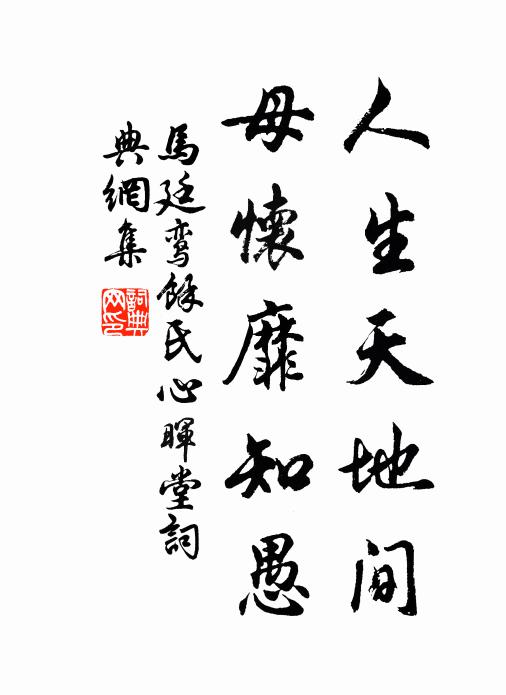 人生天地間
母懷靡知愚
馬廷鸞餘氏心暉堂詞
典網集
詞典網印